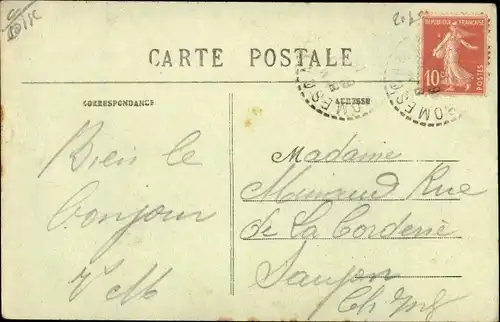 RÉPUBLIQUE FRANÇAISE
10c
POSTES
CARTE POSTALE
CORRESPONDANCE
ADRESSE
Bien le
bonjour
Madame
Minaud Rue
de La Corderie
Saujon
Ch Inf